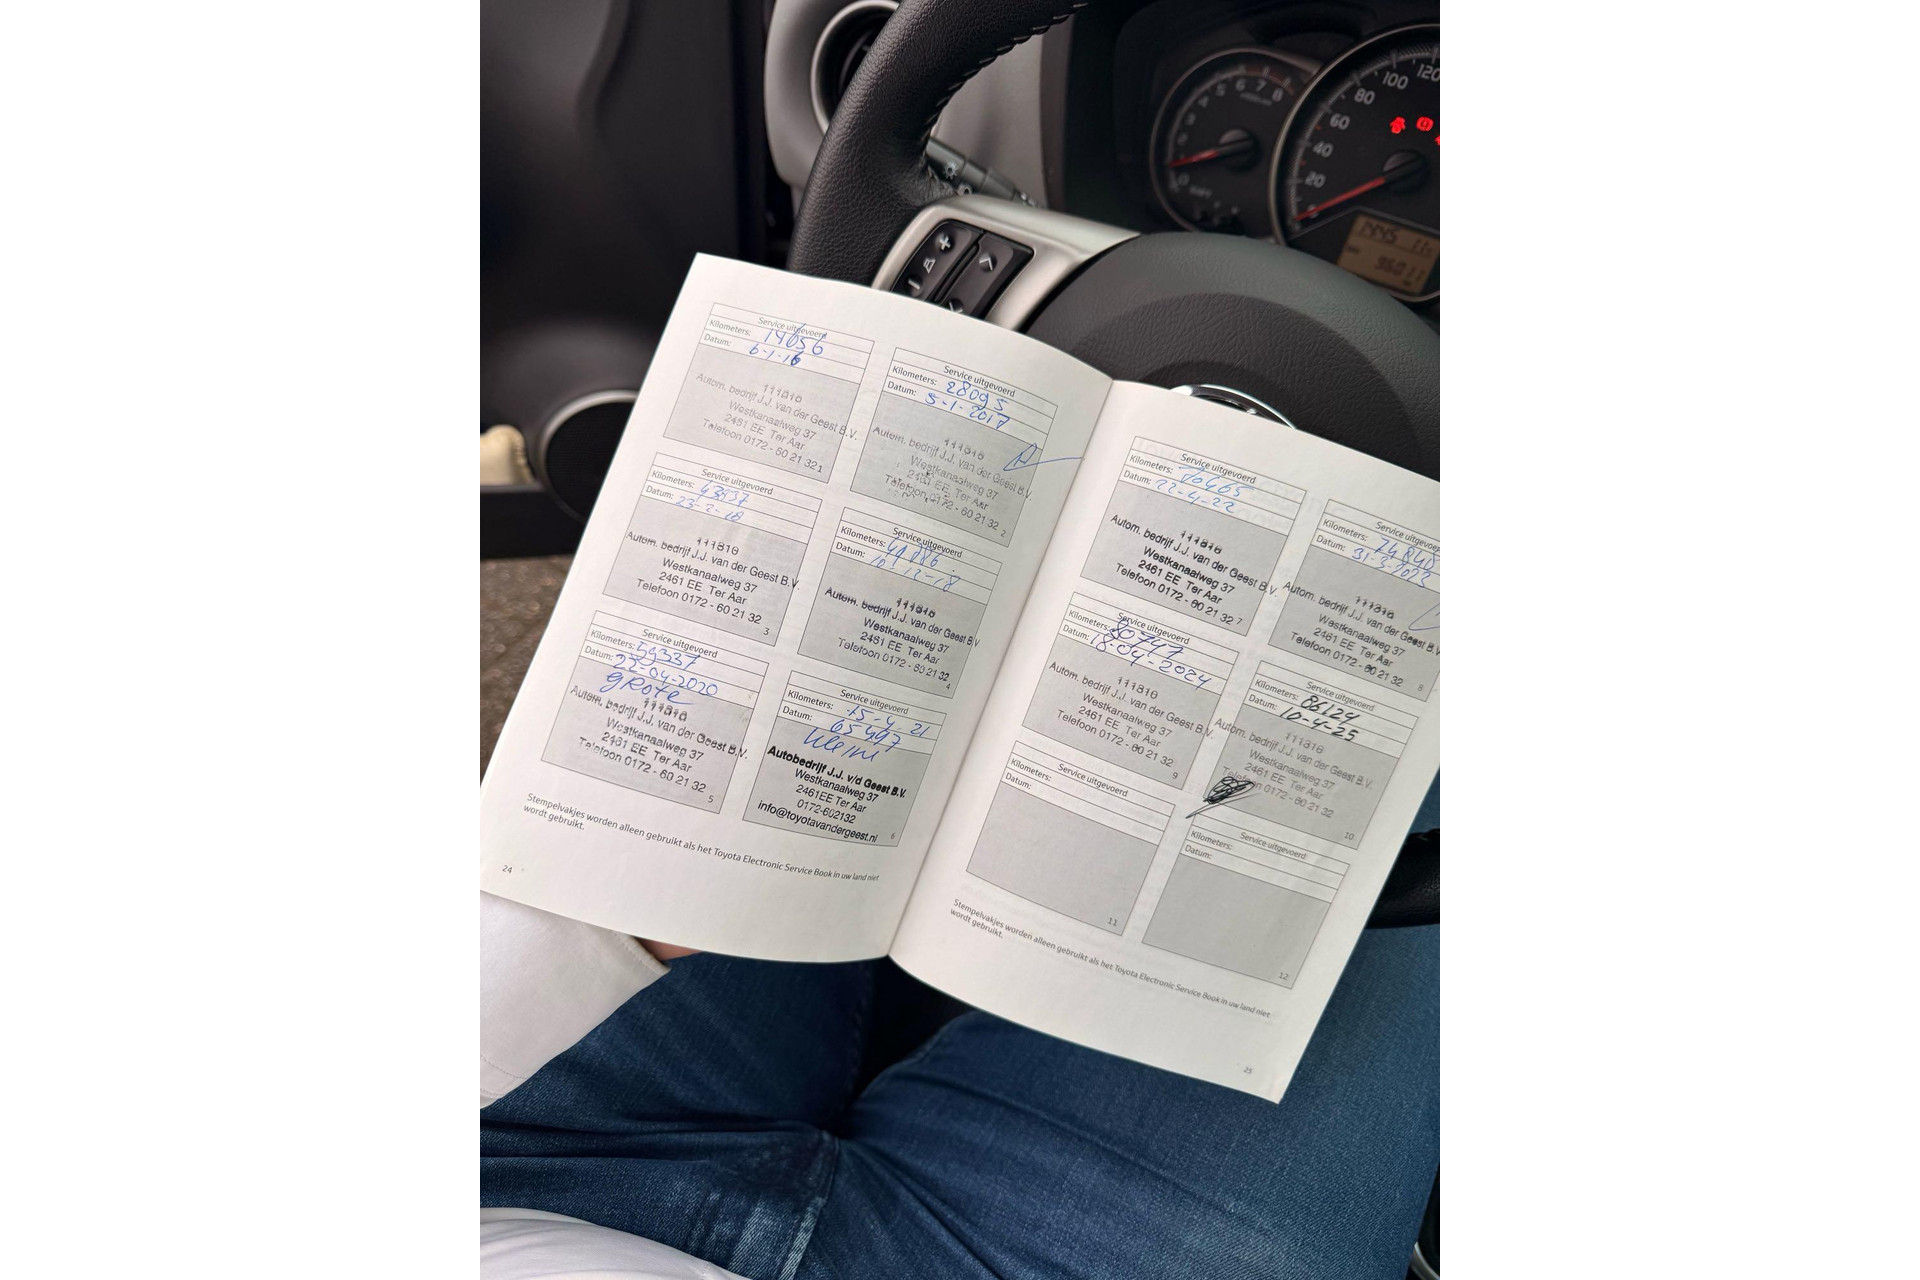 5 6 7 8
20
40
60
80
100
120
Service uitgevoerd
Kilometers: 14056
Datum: 6-1-16
111810
Autom. bedrijf J.J. van der Geest B.V.
Westkanaalweg 37
2461 EE Ter Aar
Telefoon 0172 - 60 21 32
1
Service uitgevoerd
Kilometers: 28095
Datum: 5-1-2017
111810
Autom. bedrijf J.J. van der Geest B.V.
Westkanaalweg 37
2461 EE Ter Aar
Telefoon 0172 - 60 21 32
2
Service uitgevoerd
Kilometers: 43937
Datum: 23-2-18
111810
Autom. bedrijf J.J. van der Geest B.V.
Westkanaalweg 37
2461 EE Ter Aar
Telefoon 0172 - 60 21 32
3
Service uitgevoerd
Kilometers:
Datum: 10-12-18
111810
Autom. bedrijf J.J. van der Geest B.V.
Westkanaalweg 37
2461 EE Ter Aar
Telefoon 0172 - 60 21 32
4
Service uitgevoerd
Kilometers: 59337
Datum: 23-04-2020
grote
111810
Autom. bedrijf J.J. van der Geest B.V.
Westkanaalweg 37
2461 EE Ter Aar
Telefoon 0172 - 60 21 32
5
Service uitgevoerd
Kilometers: 15-4-21
Datum: 65497
kleine
Autobedrijf J.J. v/d Geest B.V.
Westkanaalweg 37
2461EE Ter Aar
0172-602132
info@toyotavandergeest.nl
6
Stempelvakjes worden alleen gebruikt als het Toyota Electronic Service Book in uw land niet
wordt gebruikt.
24
Service uitgevoerd
Kilometers: 70465
Datum: 22-4-22
111810
Autom. bedrijf J.J. van der Geest B.V.
Westkanaalweg 37
2461 EE Ter Aar
Telefoon 0172 - 60 21 32
7
Service uitgevoerd
Kilometers: 74840
Datum:
111810
Autom. bedrijf J.J. van der Geest B.V.
Westkanaalweg 37
2461 EE Ter Aar
Telefoon 0172 - 60 21 32
8
Service uitgevoerd
Kilometers: 80747
Datum: 18-04-2024
111810
Autom. bedrijf J.J. van der Geest B.V.
Westkanaalweg 37
2461 EE Ter Aar
Telefoon 0172 - 60 21 32
9
Service uitgevoerd
Kilometers: 86124
Datum: 10-4-25
111810
Autom. bedrijf J.J. van der Geest B.V.
Westkanaalweg 37
2461 EE Ter Aar
Telefoon 0172 - 60 21 32
10
Service uitgevoerd
Kilometers:
Datum:
11
Service uitgevoerd
Kilometers:
Datum:
12
Stempelvakjes worden alleen gebruikt als het Toyota Electronic Service Book in uw land niet
wordt gebruikt.
25